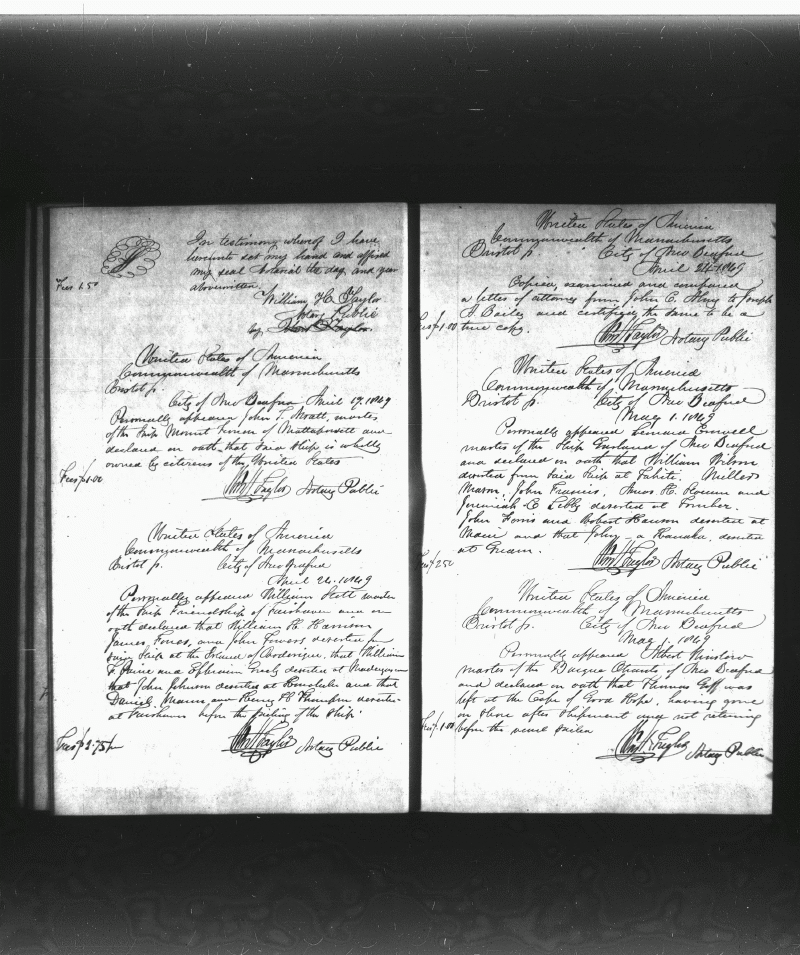 In testimony whereof I have
hereunto set my hand and affixed
my seal Notarial the day and year
abovewritten.
Fees 1.50
William H. Taylor
Notary Public
by Taylor
United States of America
Commonwealth of Massachusetts
Bristol ss.
City of New Bedford April 17. 1849
Personally appeared John F. master
of the Ship Mount Vernon of Mattapoisett and
declared on oath that said Ship is wholly
owned by citizens of the United States
Fees $1.00
Wm H Taylor Notary Public
United States of America
Commonwealth of Massachusetts
Bristol ss. City of New Bedford
April 24. 1849
Personally appeared William Stott master
of the Ship Friendship of Fairhaven and on
oath declared that William H. Harrison
James Jones, and John Towers deserted from
said Ship at the Island of that William
F. Paine and Ephraim deserted at
that John Johnson deserted at Honolulu and that
Daniel Mann and Henry B. deserted
at Fairhaven before the sailing of the Ship.
Fees $2.75
Wm H Taylor Notary Public
United States of America
Commonwealth of Massachusetts
Bristol ss. City of New Bedford
April 24 1849
Copied, examined and compared
a letter of attorney from John C. to Joseph
Bailey and certified the same to be a
true copy.
Fees $1.00
Wm H Taylor Notary Public
United States of America
Commonwealth of Massachusetts
Bristol ss. City of New Bedford
May 1. 1849
Personally appeared Lemuel
master of the Ship England of New Bedford
and declared on oath that William Wilson
deserted from said Ship at Tahiti. Willard
Mason, John Francis, Amos H. and
Jeremiah C. Libby deserted at Tombez.
John and Robert Hanson deserted at
Maui and that John – a Kanaka, deserted
at Guam.
Fees $2.50
Wm H Taylor Notary Public
United States of America
Commonwealth of Massachusetts
Bristol ss. City of New Bedford
May 1. 1849
Personally appeared Albert Winslow
master of the Barque of New Bedford
and declared on oath that Thomas Goff was
left at the Cape of Good Hope, having gone
on shore after shipment and not returning
before the vessel sailed
Fees $1.00
Wm H Taylor Notary Public